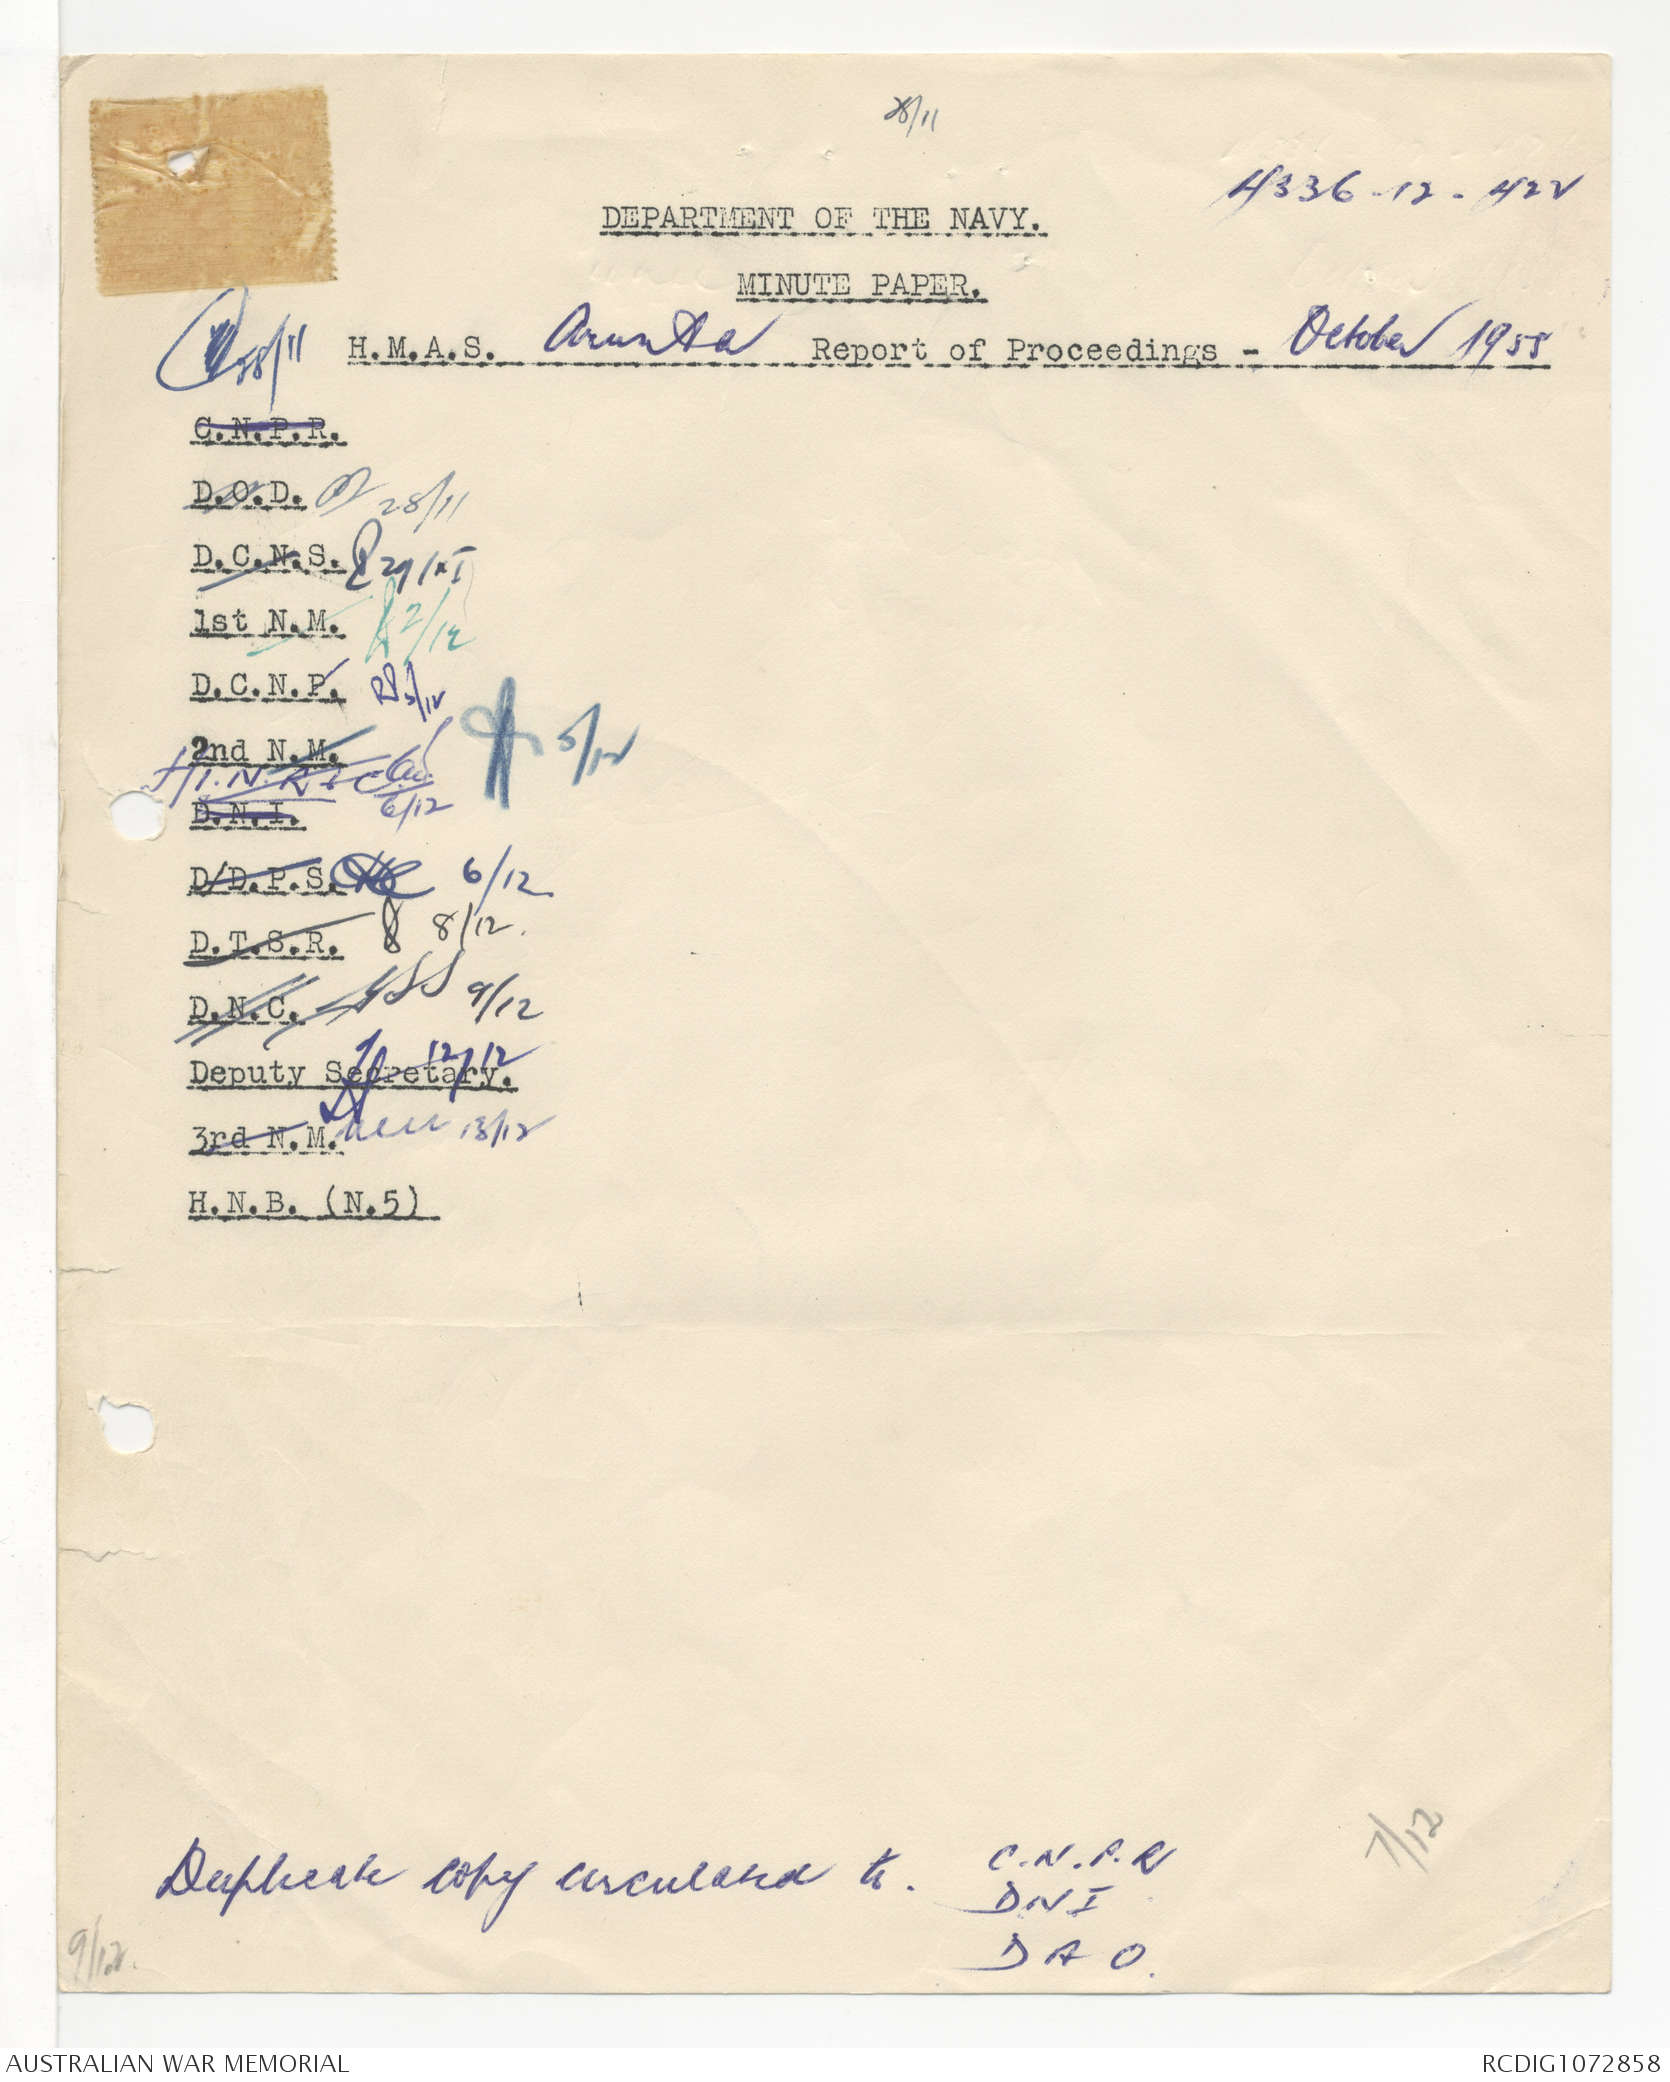 28/11
4336-12-422
DEPARTMENT OF THE NAVY.
MINUTE PAPER.
28/11 H.M.A.S. Arunta Report of Proceedings - October 1955
C.N.P.R.
D.O.D. 28/11
D.C.N.S. 29/XI
1st N.M. 2/12
D.C.N.P. 5/12
2nd N.M. 5/12
6/12
D.N.I.
D/D.P.S. 6/12
D.T.S.R. 8/12.
D.N.C. 9/12
Deputy Secretary. 12/12
3rd N.M. 13/12
H.N.B. (N.5)
7/12
Duplicate copy circulated to. C.N.P.R
DNI
DAO.
9/12.
AUSTRALIAN WAR MEMORIAL RCDIG1072858